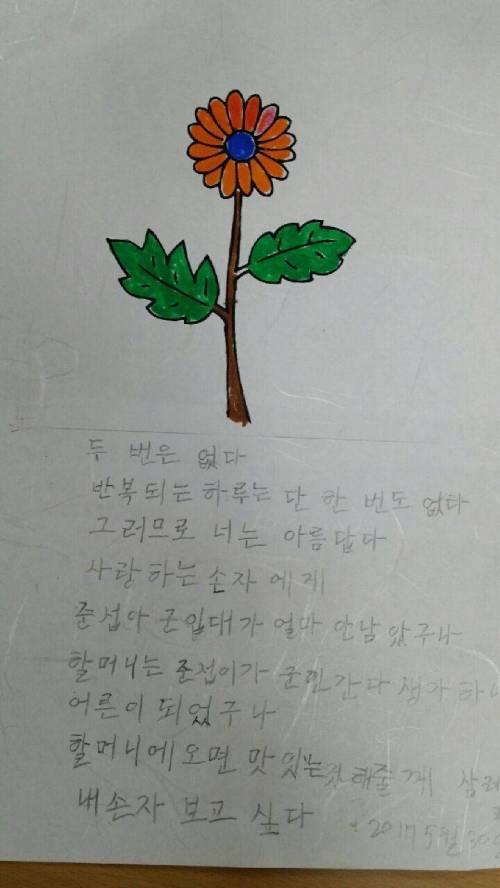 두 번은 없다
반복되는 하루는 단 한 번도 없다
그러므로 너는 아름답다
사랑하는 손자에게
준섭아 군입대가 얼마 안남았구나
할머니는 준섭이가 군인간다 생각하니
어른이 되었구나
할머니에 오면 맛있는것 해줄께
내손자 보고 싶다
2017 5월 30